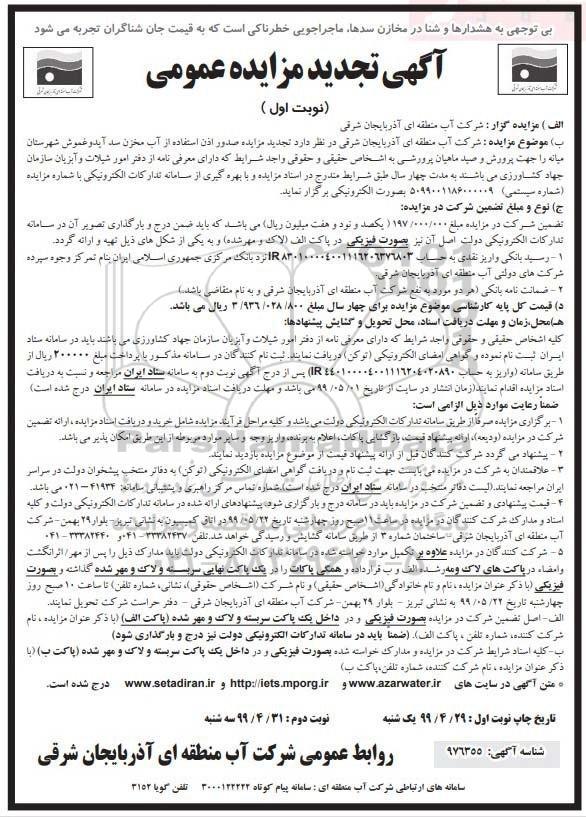 بی توجهی به هشدارها و شنا در مخازن سدها، ماجراجویی خطرناکی است که به قیمت جان شناگران تجربه می شود
آگهی تجدید مزایده عمومی
(نوبت اول )
الف ) مزایده گزار : شرکت آب منطقه ای آذربایجان شرقی
ب) موضوع مزایده : شرکت آب منطقه ای آذربایجان شرقی در نظر دارد تجدید مزایده صدور اذن استفاده از آب مخزن سد آیدوغموش شهرستان
میانه را جهت پرورش و صید ماهیان پرورشی به اشخاص حقیقی و حقوقی واجد شرایط که دارای معرفی نامه از دفتر امور شیلات و آبزیان سازمان
جهاد کشاورزی می باشند به مدت چهار سال طبق شرایط مندرج در اسناد مزایده و با بهره گیری از سامانه تدارکات الکترونیکی با شماره مزایده
(شماره سیستمی) ۵۰۹۹۰۰۱۱۸۶۰۰۰۰۰۹ بصورت الکترونیکی برگزار نماید.
ج) نوع و مبلغ تضمین شرکت در مزایده:
تضمین شرکت در مزایده مبلغ ۱۹۷/۰۰۰/۰۰۰ ( یکصد و نود و هفت میلیون ریال) می باشد که باید ضمن درج و بارگذاری تصویر آن در سامانه
تدارکات الکترونیکی دولت اصل آن نیز بصورت فیزیکی در پاکت الف (لاک و مهرشده) و به یکی از شکل های ذیل تهیه و ارائه گردد.
۱ - رسید بانکی واریز نقدی به حساب IR۸۳۰۱۰۰۰۰۴۰۰۱۱۱۶۲۰۶۳۷۶۸۰۳ نزد بانک مرکزی جمهوری اسلامی ایران بنام تمرکز وجوه سپرده
شرکت های دولتی آب منطقه ای آذربایجان شرقی.
۲ - ضمانت نامه بانکی (هر دو مورد به نفع شرکت آب منطقه ای آذربایجان شرقی و به نام متقاضی باشد.)
د) قیمت کل پایه کارشناسی موضوع مزایده برای چهار سال مبلغ ۳/۹۳۶/۰۲۸/۸۰۰ ریال می باشد.
هـ)محل،زمان و مهلت دریافت اسناد، محل تحویل و گشایش پیشنهادها:
کلیه اشخاص حقیقی و حقوقی واجد شرایط که دارای معرفی نامه از دفتر امور شیلات و آبزیان سازمان جهاد کشاورزی می باشند باید در سامانه ستاد
ایران ثبت نام نموده و گواهی امضای الکترونیکی (توکن) دریافت نمایند. ثبت نام کنندگان در سامانه مذکور با پرداخت مبلغ ۲۰۰۰۰۰ ریال از
طریق سامانه (واریز به حساب IR ۴۴۰۱۰۰۰۰۴۰۰۱۱۱۶۲۰۴۰۲۰۸۹۰) پس از درج آگهی نوبت دوم به سامانه ستاد ایران مراجعه و نسبت به دریافت
اسناد مزایده اقدام نمایند(زمان انتشار در سایت از تاریخ ۹۹/۰۵/۰۱ می باشد و مهلت دریافت اسناد مزایده در سامانه ستاد ایران درج شده است)
ضمناً رعایت موارد ذیل الزامی است:
۱ - برگزاری مزایده صرفاً از طریق سامانه تدارکات الکترونیکی دولت می باشد و کلیه مراحل فرآیند مزایده شامل خرید و دریافت اسناد مزایده، ارائه تضمین
شرکت در مزایده (ودیعه)، ارائه پیشنهاد قیمت، بازگشایی پاکات، اعلام به برنده، واریز وجه و سایر موارد مربوطه از این طریق امکان پذیر می باشد.
۲ - پیشنهاد می گردد شرکت کنندگان قبل از ارائه پیشنهاد قیمت از موضوع مزایده بازدید نمایند.
۳ - علاقمندان به شرکت در مزایده می بایست جهت ثبت نام و دریافت گواهی امضای الکترونیکی (توکن) به دفاتر منتخب پیشخوان دولت در سراسر
ایران مراجعه نمایند.(لیست دفاتر منتخب در سامانه ستاد ایران درج شده است) شماره تماس مرکز راهبری و پشتیبانی سامانه: ۴۱۹۳۴-۰۲۱ می باشد.
۴ - قیمت پیشنهادی و تضمین شرکت در مزایده باید در سامانه درج و بارگزاری شود، پیشنهادهای ارائه شده در سامانه تدارکات الکترونیکی دولت و کلیه
اسناد و مدارک شرکت کنندگان در مزایده در ساعت ۱۱ صبح روز چهارشنبه تاریخ ۹۹/۰۵/۲۲ در اتاق کمیسیون به نشانی تبریز- بلوار ۲۹ بهمن- شرکت
آب منطقه ای آذربایجان شرقی- ساختمان شماره ۳ از طریق سامانه گشایش و رسیدگی خواهد شد.تلفن ۳۳۳۸۲۴۳۷-۰۴۱ و ۳۳۳۸۲۴۴۰-۰۴۱
۵ - شرکت کنندگان در مزایده علاوه بر تکمیل موارد خواسته شده در سامانه تدارکات الکترونیکی دولت باید مدارک ذیل را پس از مهر/ اثرانگشت
وامضاء در پاکت های لاک ومهرشده الف و ب قرارداده و همگی پاکات را در یک پاکت نهایی سربسته و لاک و مهر شده گذاشته و بصورت
فیزیکی (با ذکر عنوان مزایده ، نام و نام خانوادگی(اشخاص حقیقی) و نام شرکت (اشخاص حقوقی)، نشانی، شماره تلفن) تا ساعت ۱۰ صبح روز
چهارشنبه تاریخ ۹۹/۰۵/۲۲ به نشانی تبریز - بلوار ۲۹ بهمن- شرکت آب منطقه ای آذربایجان شرقی - دفتر حراست شرکت تحویل نمایند.
الف- اصل تضمین شرکت در مزایده بصورت فیزیکی و در داخل یک پاکت سربسته و لاک و مهر شده (پاکت الف) (با ذکر عنوان مزایده ، نام
شرکت کننده، شماره تلفن ، پاکت الف). (ضمناً باید در سامانه تدارکات الکترونیکی دولت نیز درج و بارگذاری شود)
ب-کلیه اسناد شرایط شرکت در مزایده و مدارک خواسته شده بصورت فیزیکی و در داخل یک پاکت سربسته و لاک و مهر شده (پاکت ب) (با
ذکر عنوان مزایده ، نام شرکت کننده، شماره تلفن،پاکت ب)
* متن آگهی در سایت های www.azarwater.ir و http://iets.mporg.ir و www.setadiran.ir درج شده است.
تاریخ چاپ نوبت اول : ۹۹/۴/۲۹ یک شنبه نوبت دوم : ۹۹/۴/۳۱ سه شنبه
شناسه آگهی: ۹۷۶۳۵۵
روابط عمومی شرکت آب منطقه ای آذربایجان شرقی
سامانه های ارتباطی شرکت آب منطقه ای : سامانه پیام کوتاه ۳۰۰۰۱۲۲۲۲۲ تلفن گویا ۳۱۵۲